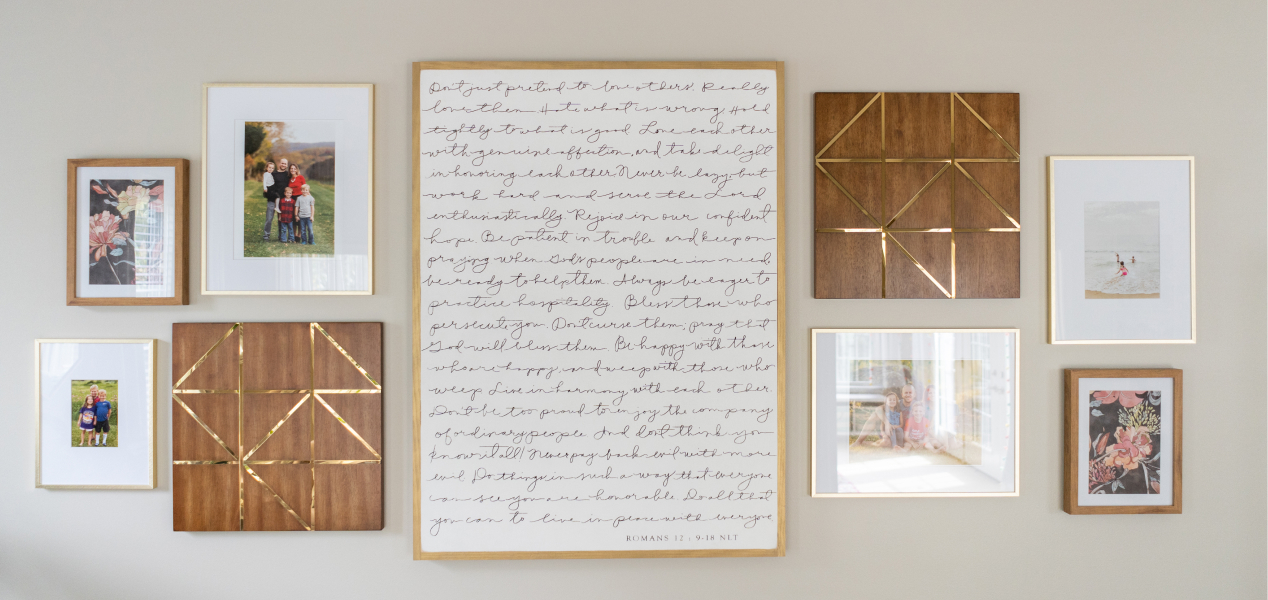 Don't just pretend to love others. Really
love them. Hate what is wrong. Hold
tightly to what is good. Love each other
with genuine affection, and take delight
in honoring each other. Never be lazy, but
work hard and serve the Lord
enthusiastically. Rejoice in our confident
hope. Be patient in trouble and keep on
praying. When God's people are in need,
be ready to help them. Always be eager to
practice hospitality. Bless those who
persecute you. Don't curse them; pray that
God will bless them. Be happy with those
who are happy, and weep with those who
weep. Live in harmony with each other.
Don't be too proud to enjoy the company
of ordinary people. And don't think you
know it all! Never pay back evil with more
evil. Do things in such a way that everyone
can see you are honorable. Do all that
you can to live in peace with everyone.
ROMANS 12 : 9-18 NLT